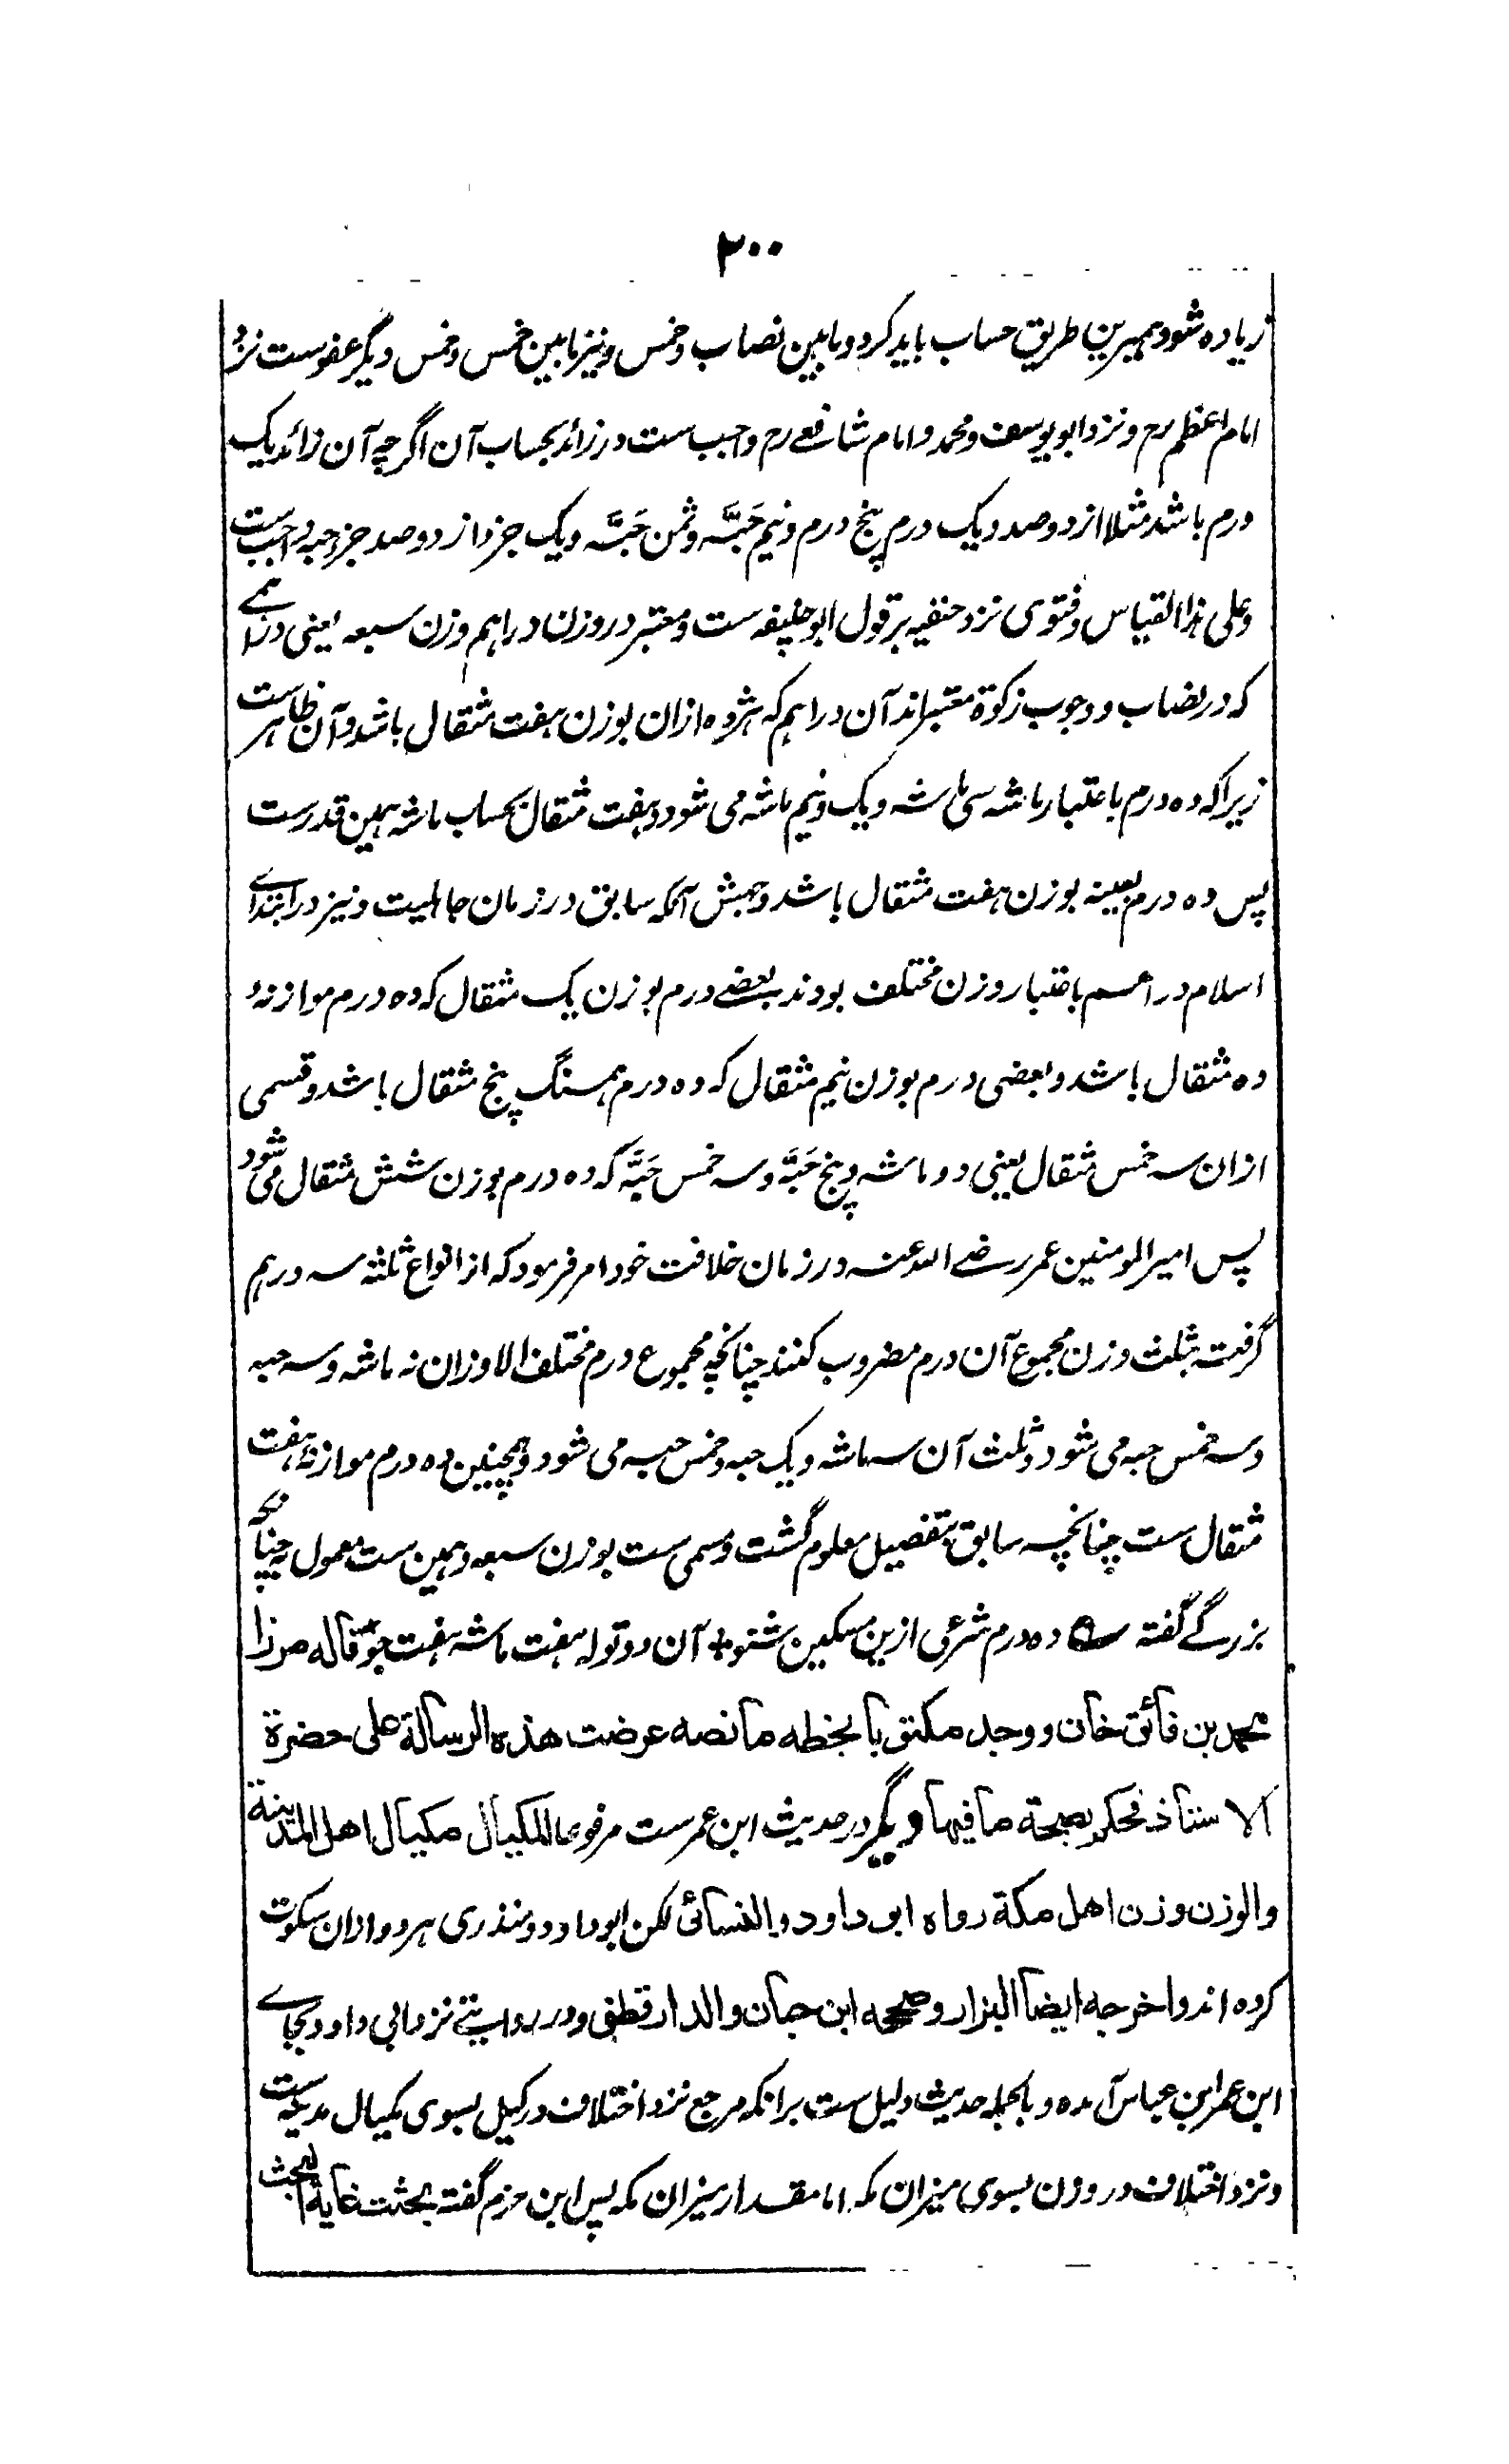 ۲۰۰
زیاده شود همبرین طریق حساب باید کرد و مابین نصاب و خمس و نیز مابین خمس و خمس دیگر عفوست نزد
امام اعظم رح و نزد ابو یوسف و محمد و امام شافعے رح واجب ست در زائد بحساب آن اگرچه آن زائد یک
درم باشد مثلا از دو صد و یک درم پنج درم و نیم حَبَّه و ثمن حَبَّه و یک جز از دو صد جزو حبه واجب ست
و علی هذا القیاس و فتوی نزد حنفیه بر قول ابو حنیفه ست و معتبر در وزن دراهم وزن سبعه یعنی دراهمے
که در نصاب و وجوب زکوة معتبر اند آن دراهم که هر ده ازان بوزن هفت مثقال باشد و آن ظاهر ست
زیراکه ده درم باعتبار ماشه سی ماشه و یک و نیم ماشه می شود و هفت مثقال بحساب ماشه همین قدرست
پس ده درم بعینه بوزن هفت مثقال باشد و جهش آنکه سابق در زمان جاهلیت و نیز در ابتدای
اسلام دراهم باعتبار وزن مختلف بودند بعضے درم بوزن یک مثقال که ده درم موازنهٔ
ده مثقال باشد و بعضی درم بوزن نیم مثقال که ده درم همسنگ پنج مثقال باشد و قسمی
ازان سه خمس مثقال یعنی دو ماشه و پنج حَبَّه و سه خمس حَبَّه که ده درم بوزن شش مثقال می شود
پس امیر المومنین عمر رضے الله عنه در زمان خلافت خود امر فرمود که از انواع ثلثه سه درهم
گرفته بثلث وزن مجموع آن درم مضروب کنند چنانچه مجموع درم مختلف الاوزان نه ماشه و سه حبه
و سه خمس حبه می شود و ثلث آن سه ماشه و یک حبه و خمس حبه می شود و همچنین ده درم موازنهٔ هفت
مثقال ست چنانچه سابق بتفصیل معلوم گشت و مسمی ست بوزن سبعه و همین ست معمول به چنانچه
بزرگے گفته ده درم شرعی ازین مسکین شنو + آن دو توله هفت ماشه هفت جو قاله مرزا
محمد بن فائق خان و وجد مکتوبا بخطه ما نصه عرضت هذه الرسالة علی حضرة
الاستاذ فحکم بصحة ما فیها دیگر در حدیث ابن عمر ست مرفوعا المکیال مکیال اهل المدینة
والوزن وزن اهل مکة رواه ابو داود و النسائی لکن ابو داود و منذری هر دو ازان سکوت
کرده اند و اخرجه ایضا البزار و صححه ابن حبان و الدارقطنی و در روایتے نزد ابی داود بجاے
ابن عمر ابن عباس آمده و بالجمله حدیث دلیل ست برانکه مرجع نزد اختلاف در کیل بسوی مکیال مدینه ست
و نزد اختلاف در وزن بسوی میزان مکه اما مقدار میزان مکه پس ابن حزم گفته بحثت غایة البحث